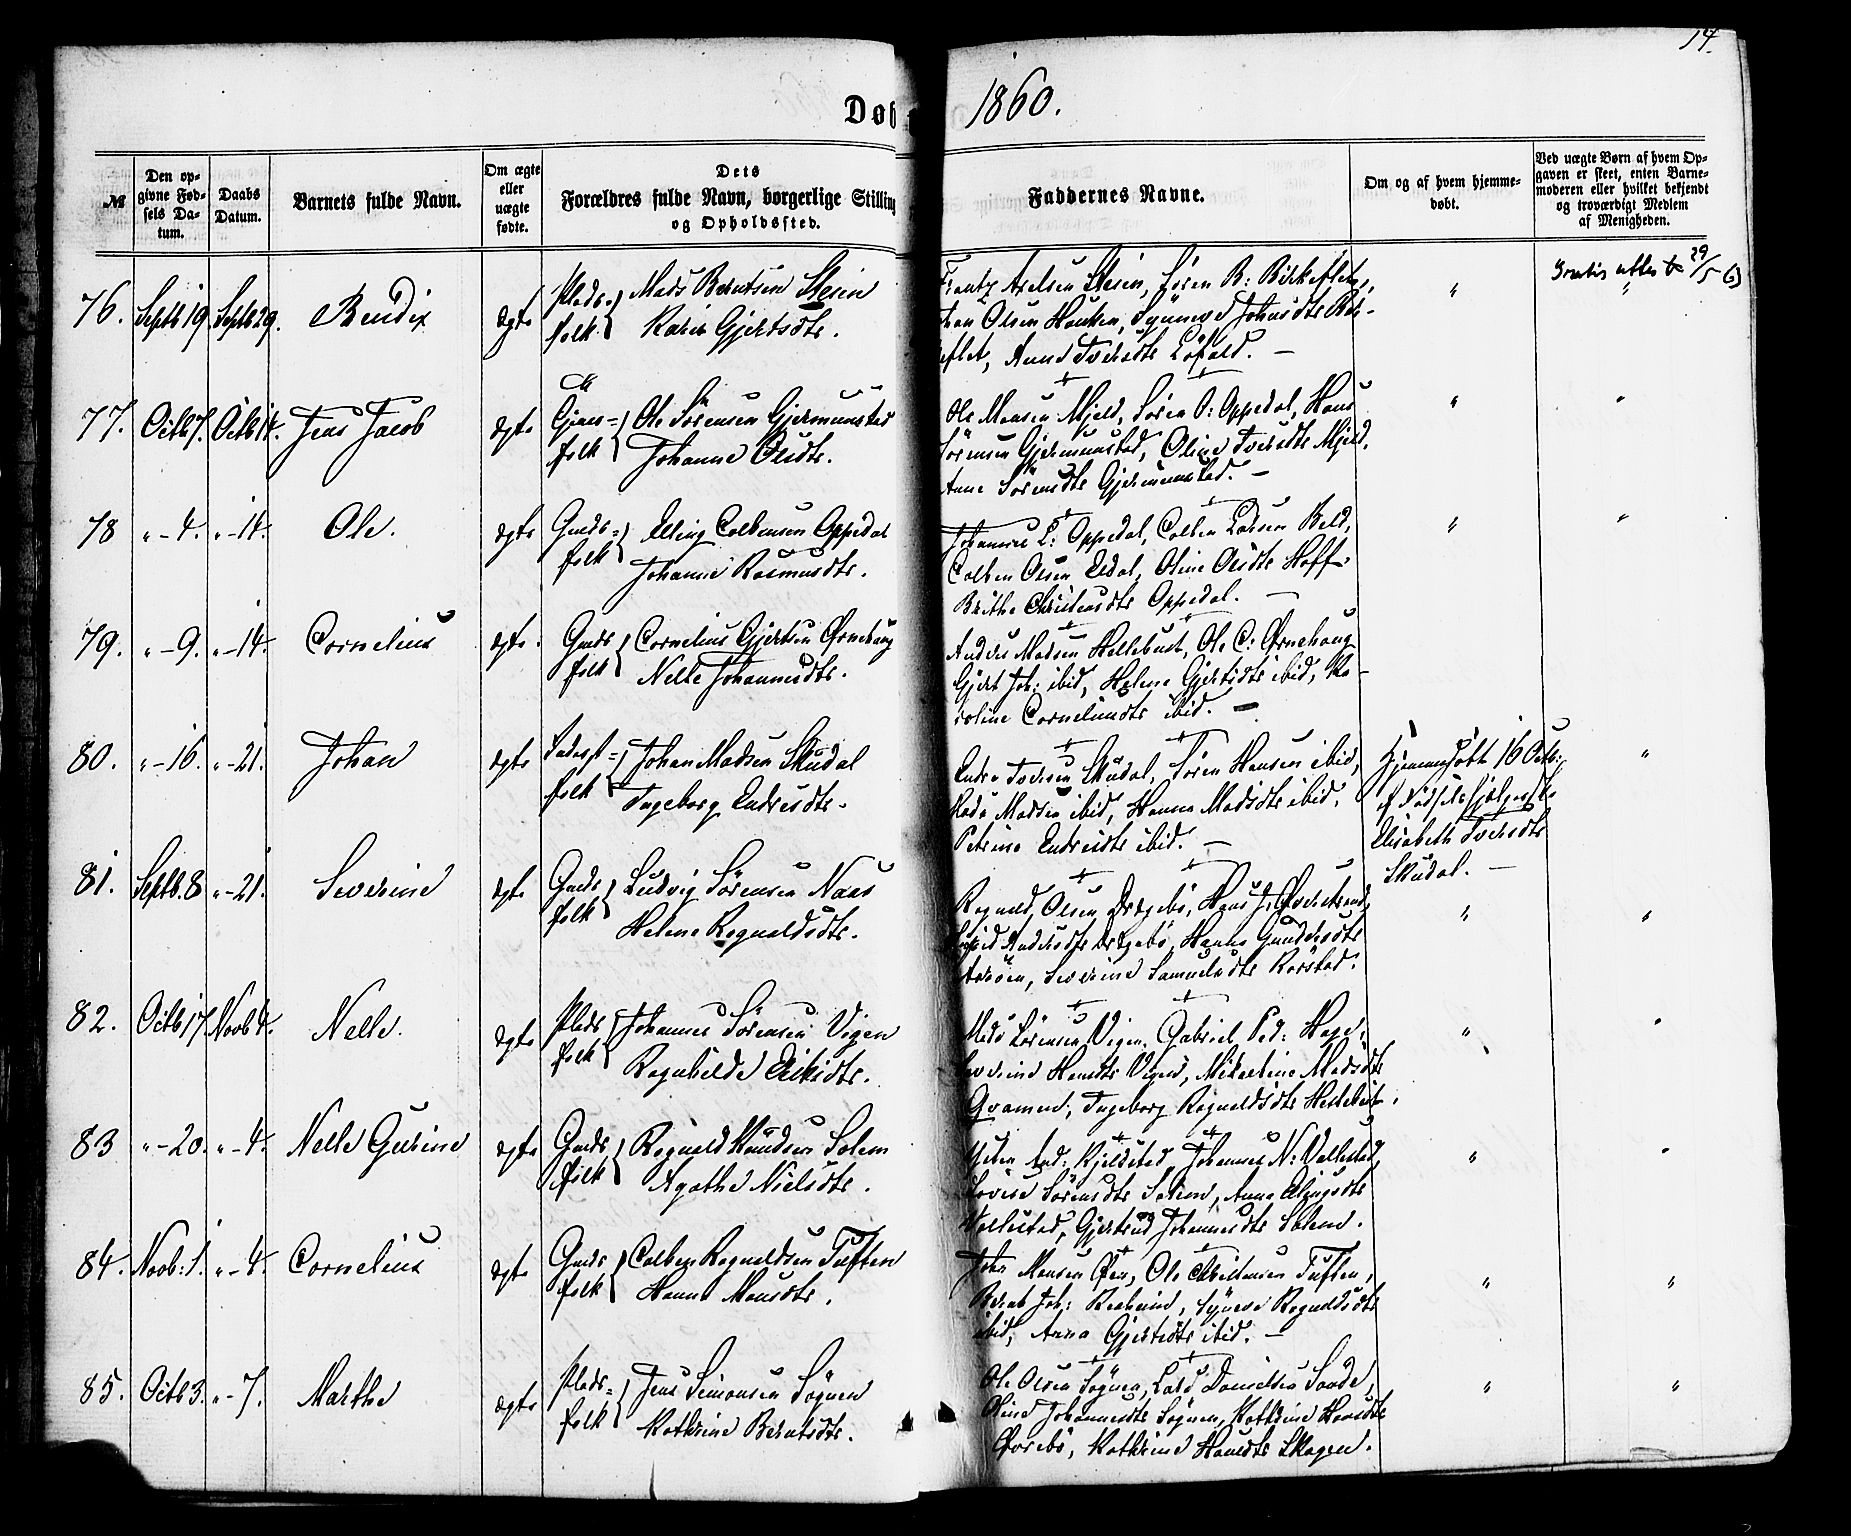 14.
Døb
1860.
№
Den op-
givne Fød-
sels Da-
tum.
Daabs
Datum.
Barnets fulde Navn.
Om ægte
eller
uægte
fødte.
Dets
Forældres fulde Navn, borgerlige Stilling
og Opholdssted.
Faddernes Navne.
Om og af hvem hjemme-
døbt.
Ved uægte Børn af hvem Op-
gaven er skeet, enten Barne-
moderen eller hvilket bekjendt
og troværdigt Medlem
af Menigheden.
76. Septb 19 Septb 29. Bendix ægte Plads-folk Mads Berntsen Stesin
Karin Gjertsdtr.
Frantz Axelsen Stesin, Sören B: Birkeflet,
Olsen Hauken, Synneve Johnsdtr Bir-
eflet, Anne Iversdtr Löfald. —
"
Gratis attest 29/5 63
"
77. Octb 7. Octb 14. Jens Jacob ægte Gjms-folk Ole Sörensen Gjermunstad
Johanne Olsdtr.
Ole Monsen Mjeld, Sören O: Oppedal, Hans
Sörensen Gjermunstad, Oline Iversdtr Mjeld,
Anne Sörensdtr Gjermunstad. —
"
"
78 " - 4. " - 14. Ole. ægte Gmds-folk Elling Colbensen Oppedal
Johanne Rasmusdtr.
Johannes L: Oppedal, Colben Larsen Bild,
Colben Olsen Eldal, Oline Olsdtr Hoff.
Brithe Christensdtr Oppedal. —
"
"
79. " - 9. " - 14. Cornelius ægte. Gmds folk Cornelius Gjertsen Ørnehaug
Nelle Johannesdtr.
Anders Madsen Hellebust, Ole C: Ørnehaug
Gjert Joh: ibid, Helene Gjertsdtr ibid, Ka-
roline Corneliusdtr ibid. —
80. " - 16. " - 21. Johan ægte folk Johan Madsen Skudal
Ingeborg Endresdtr.
Endre Iversen Skudal, Sören Hansen ibid,
Mads Madsen ibid, Hanna Madsdtr ibid.
Petrine Endresdtr ibid. —
Hjemmedöbt 16 Octb:
af Födselshjelperske
Elisabeth Iversdtr
Skudal. —
"
81. Septb. 8 " - 21. Severine ægte Gmds folk Ludvig Sörensen Naas
Helene Rognaldsdtr.
Rognald Olsen Drægebö, Hans J: Øvrestrand,
Andersdtr Drægebö, Hanna Gundersdtr
Severine Samuelsdtr Rörstad.
"
"
82. Octb 17 Novb 4. Nelle. ægte Plads folk Johannes Sörensen Vigen
Ragnhilde Eriksdtr.
Mads Sörensen Vigen. Gabriel Ped: Hage.
Severine Hansdtr Vigen, Mikaeline Madsdtr
Qvamen, Ingeborg Rögnaldsdtr Hellebust.
"
"
83 " - 20. " - 4. Nelle Gurine ægte Gmds folk Rognald Knudsen Solem
Agathe Nielsdtr.
And: Kjeldstad, Johannes N: Vallestad,
Lovise Sörensdtr Solem, Anne
Vallestad, Gjertrud Johannesdtr Solem.
"
"
84. Novb: 1. " - 4. Cornelius ægte Gmds folk Colben Rognaldsen Tuften
Hanna Monsdtr.
John Monsen Øen, Ole Christensen Tuften,
Berent Joh: Synneve Rognaldsdtr
ibid, Anna Gjertsdtr ibid. —
"
"
85. Octb 3. " - 7. Marthe ægte Plads-folk Jens Simonsen Sögnen
Kathrine Berntsdtr.
Ole Olsen Sögnen, Lars Danielsen Saude,
Oline Johannesdtr Sögnen, Kathrine Hansdtr
Øvrebö, Kathrine Hansdtr Skogen.
"
"